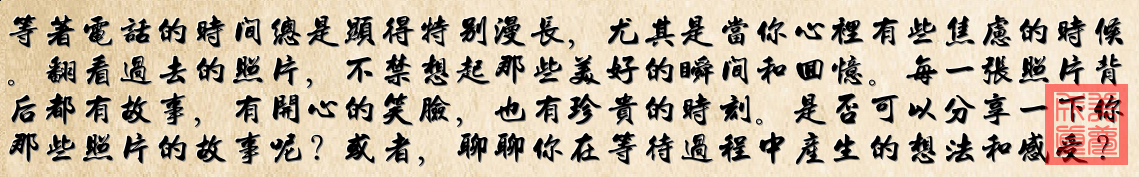 等著電話的時间總是顯得特别漫長，尤其是當你心裡有些焦慮的時候
。翻看過去的照片，不禁想起那些美好的瞬间和回憶。每一張照片背
后都有故事，有開心的笑臉，也有珍貴的時刻。是否可以分享一下你
那些照片的故事呢？或者，聊聊你在等待過程中産生的想法和感受？